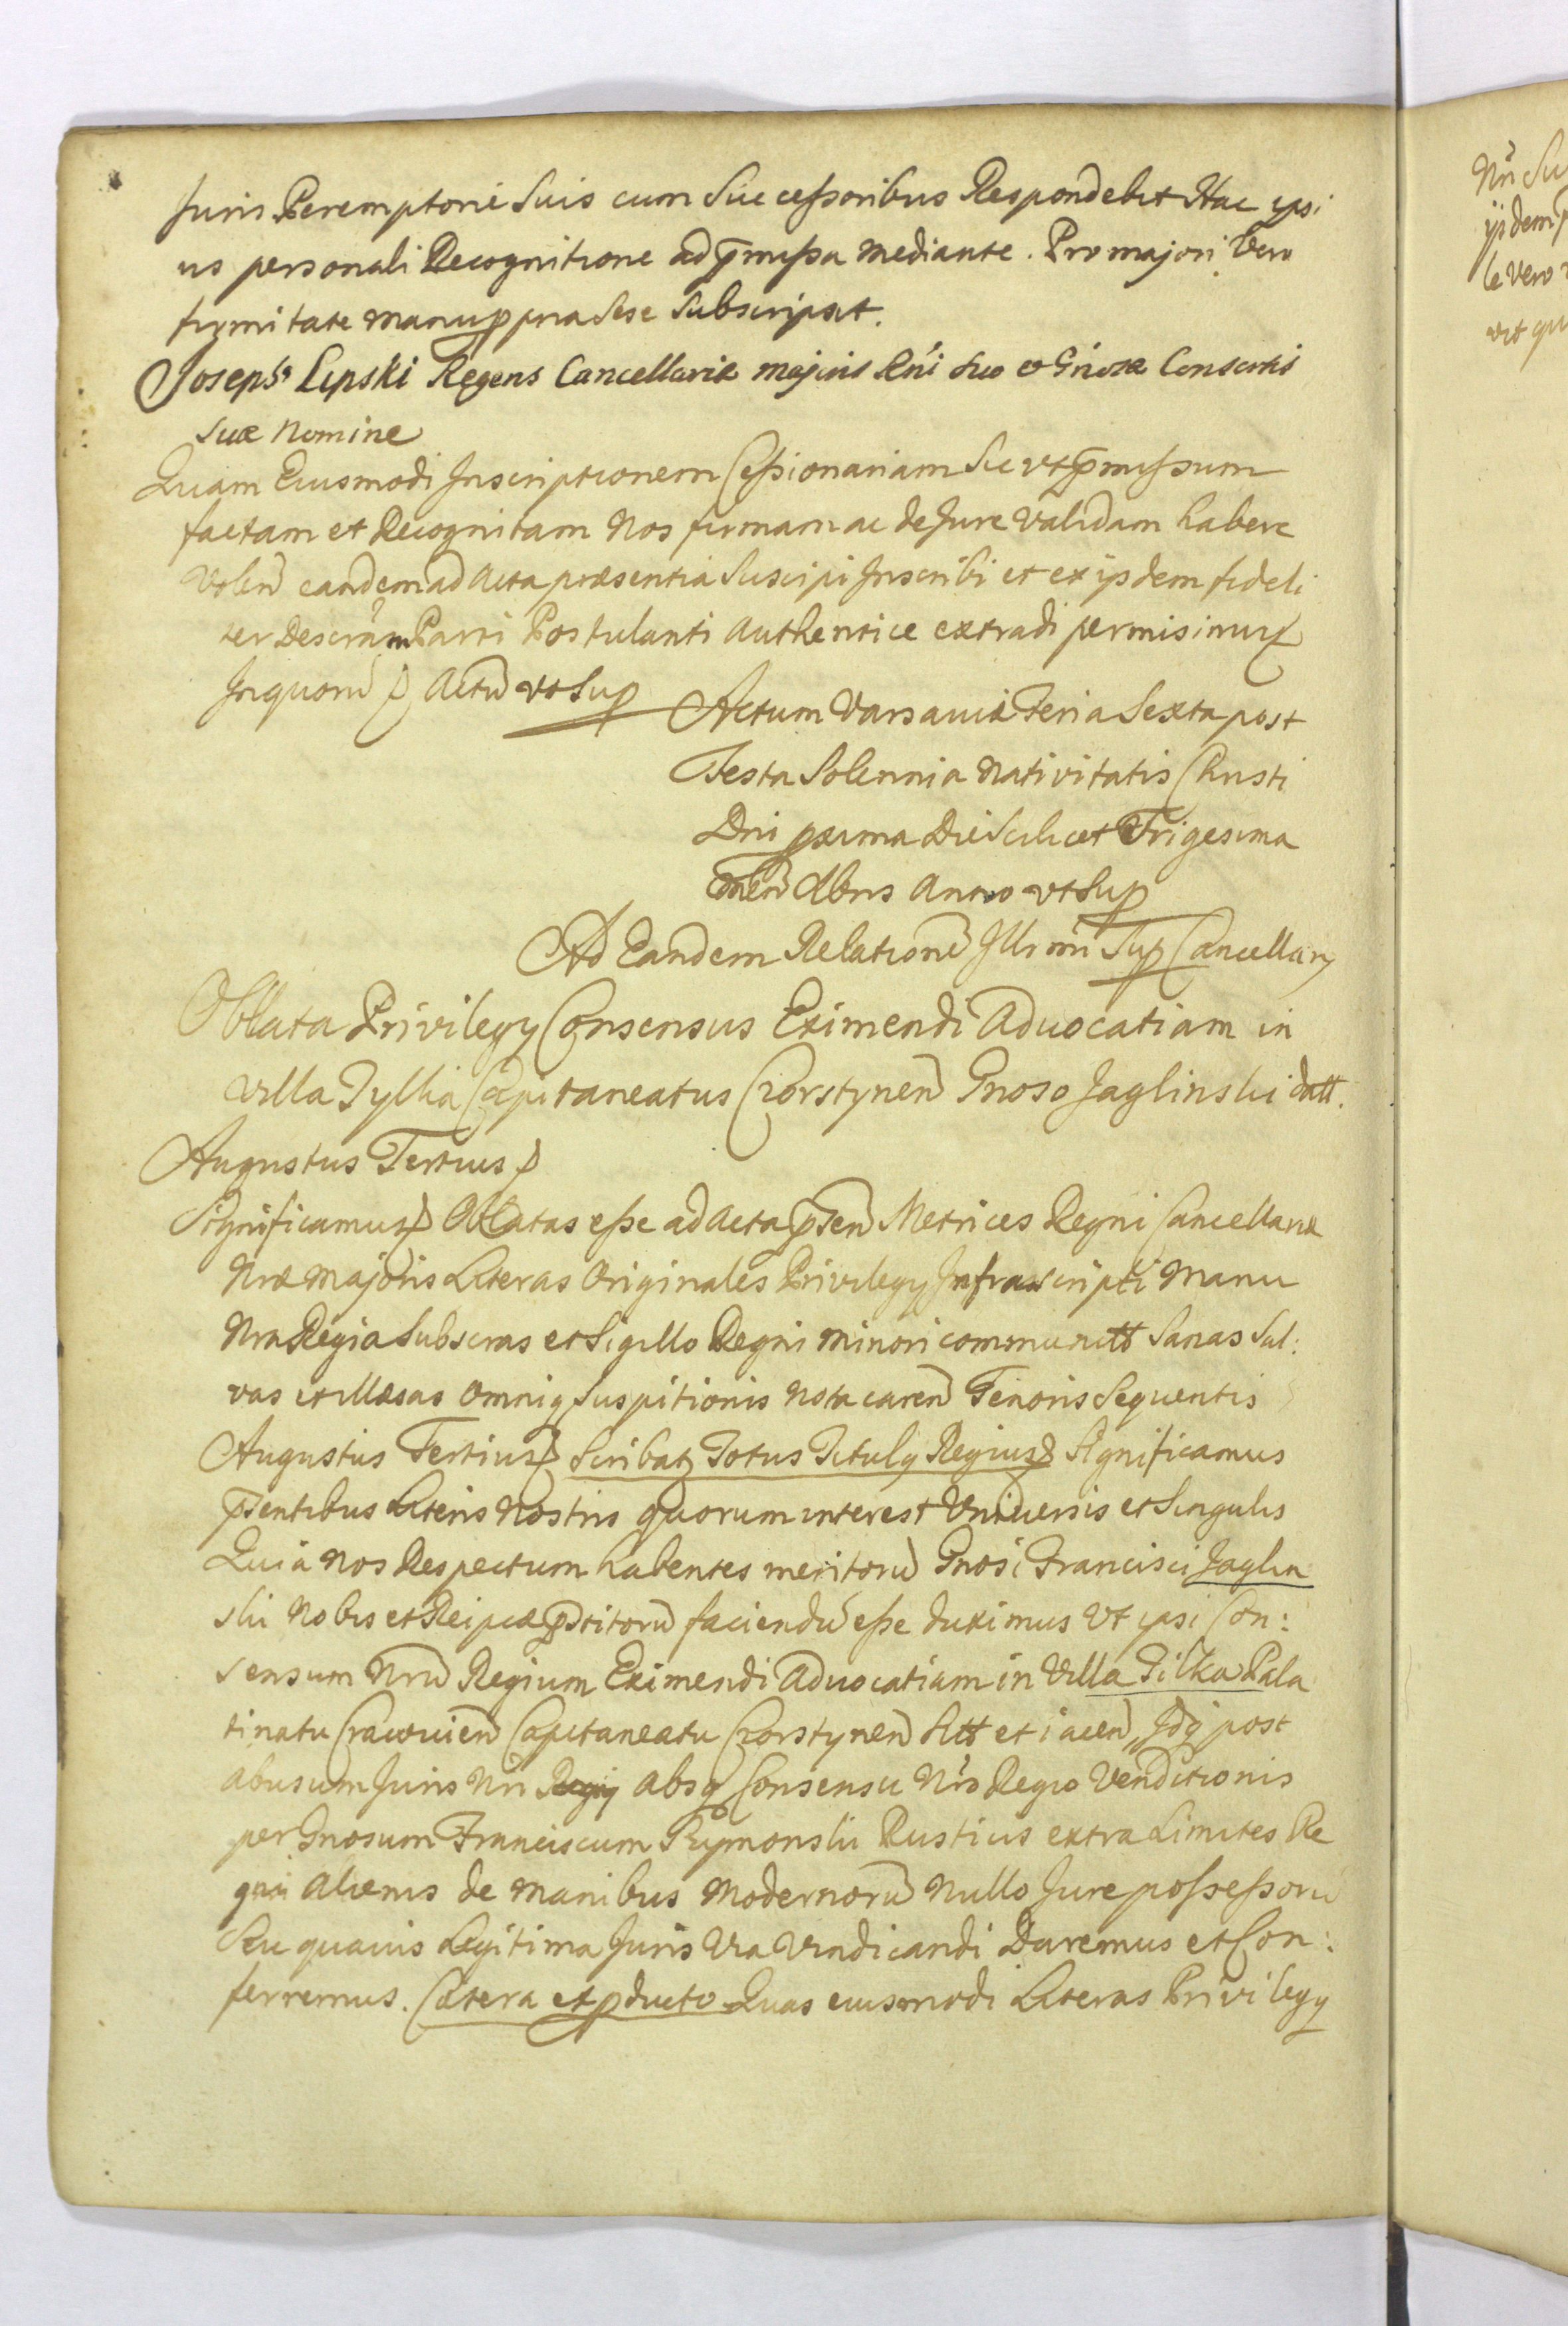 Juris Peremptorie Suis cum Successoribus Respondebit Hac ipsi
us personali Recognitione ad p̄missa mediante. Pro majori Vero
firmitate manu ppria Sese Subscripsit.
Josephs Lipski Regens Cancellariæ majoris Rńi suo et Gńosæ Consortis
Suæ Nomine
Quam Eiusmodi Inscriptionem Cessionariam Sic vt p̄missum
factam et Recognitam Nos firmam ac de Jure Validam habere
Volen̄ eandem ad Acta præsentia Suscipi Inscribi et ex ijsdem fideli
ter Descriām Parti Postulanti Authentice extradi permisimus
In quorū p Actū vt Sup
Actum Varsaviæ Feria Sexta post
Festa Solennia Nativitatis Christi
Dni pxima Die Scilicet Trigesima
Men̄ Xbris Anno vt Sup
Ad Eandem Relationē Illrmi Sup Cancellary
Oblata Privilegy Consensus Eximendi Aduocatiam in
Villa Tylka Capitaneatus Czorstynen̄ Gnoso Jaglinski datt.
Augustus Tertius p
Significamus p Oblatas esse ad Acta p̄sen̄ Metrices Regni Cancellariæ
Nræ majoris Literas Originales Privilegy Infrascripti Manu
Nra Regia Subscras et Sigillo Regni minori communitt Sanas Sal:
vas et illæsas omniq Suspitionis Nota caren̄ Tenoris Sequentis
Augustus Tertius p Scribatz Totus Titulq Regius p Significamus
p̄sentibus Literis Nostris quorum interest Universis et Singulis
Quia Nos Respectum habentes meritorū Gnosi Francisci Jaglin
ski Nobis et Reipcæ p̄stitorū faciendū esse duximus Vt ipsi Con:
sensum Nrū Regium Eximendi Aduocatiam in Villa Tilka Pala
tinatu Cracouien̄ Capitaneatu Czorstynen̄ Sitt et iacen̄, Idq post
abusum Juris Nri Regij absq Consensu Nro Regio Venditionis
per Gnosum Franciscum Rymonski Rusticis extra Limites Re
gni Alienis de manibus Modernorū Nullo Jure possessorū
Seu quauis Legitima Juris Via Vindicandi Daremus et Con:
ferremus. Cætera et pducto Quas eiusmodi Literas Privilegy
Nri Su
ijsdem
le vero
vit qu